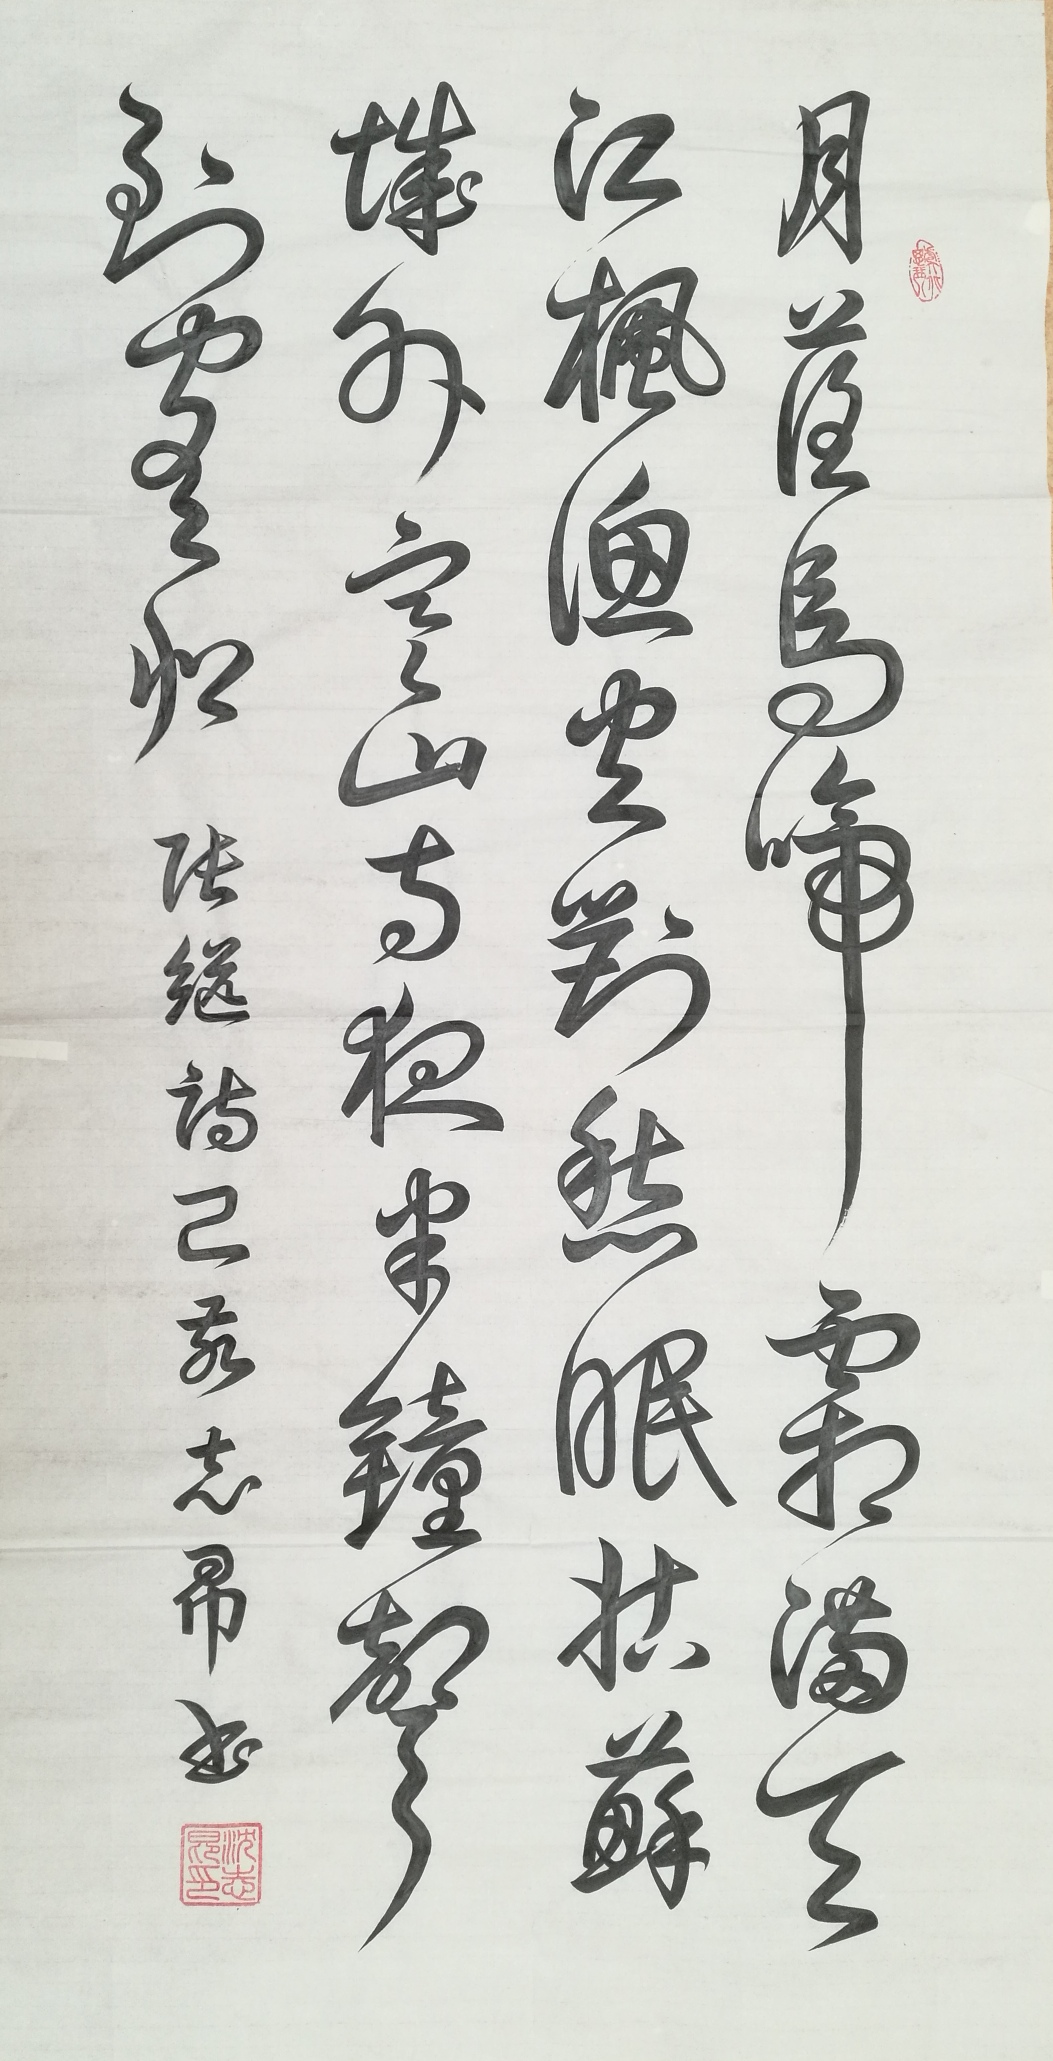 月落烏啼霜滿天
江楓漁火對愁眠姑蘇
城外寒山寺夜半鐘聲
到客船 張繼詩己亥志昂書
沈志昂印